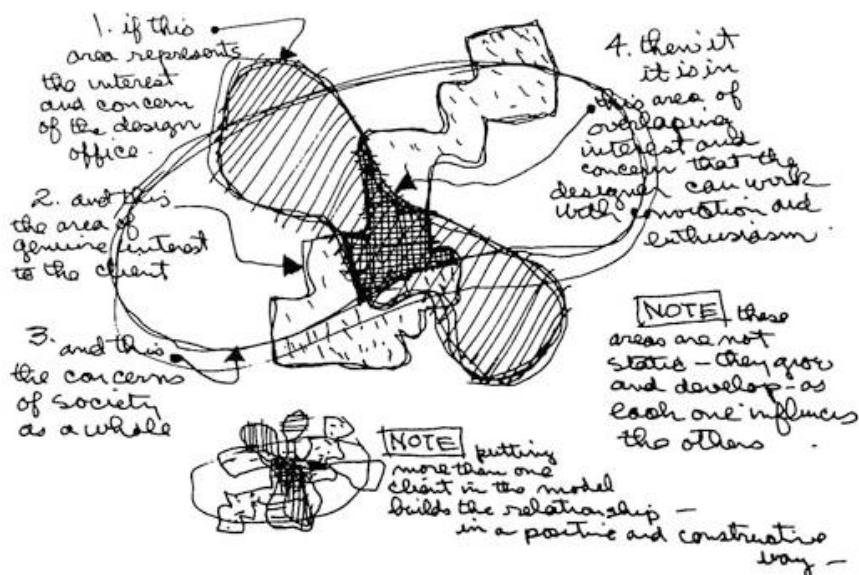 1. if this
area represents
the interest
and concern
of the design
office.
2. and this
the area of
genuine interest
to the client
3. and this
the concerns
of society
as a whole
4. then it
it is in
this area of
overlaping
interest and
concern that the
designer can work
with conviction and
enthusiasm.
NOTE these
areas are not
static – they grow
and develop – as
each one influences
the others.
NOTE putting
more than one
client in the model
builds the relationship –
in a positive and constructive
way –